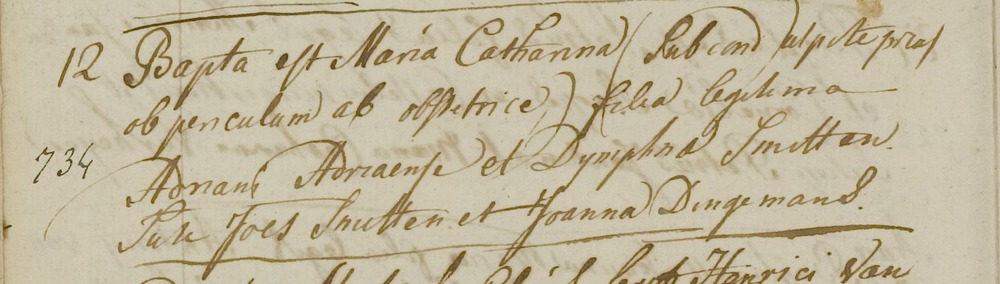 12 Bapta est Maria Catharina (Sub cond) utpote prius
ob periculum ab obstetrice) filia legitima
734
Adriani Adriaense et Dymphna Smitten.
Susc Joes Smitten et Joanna Dingemans.
Henrici Van